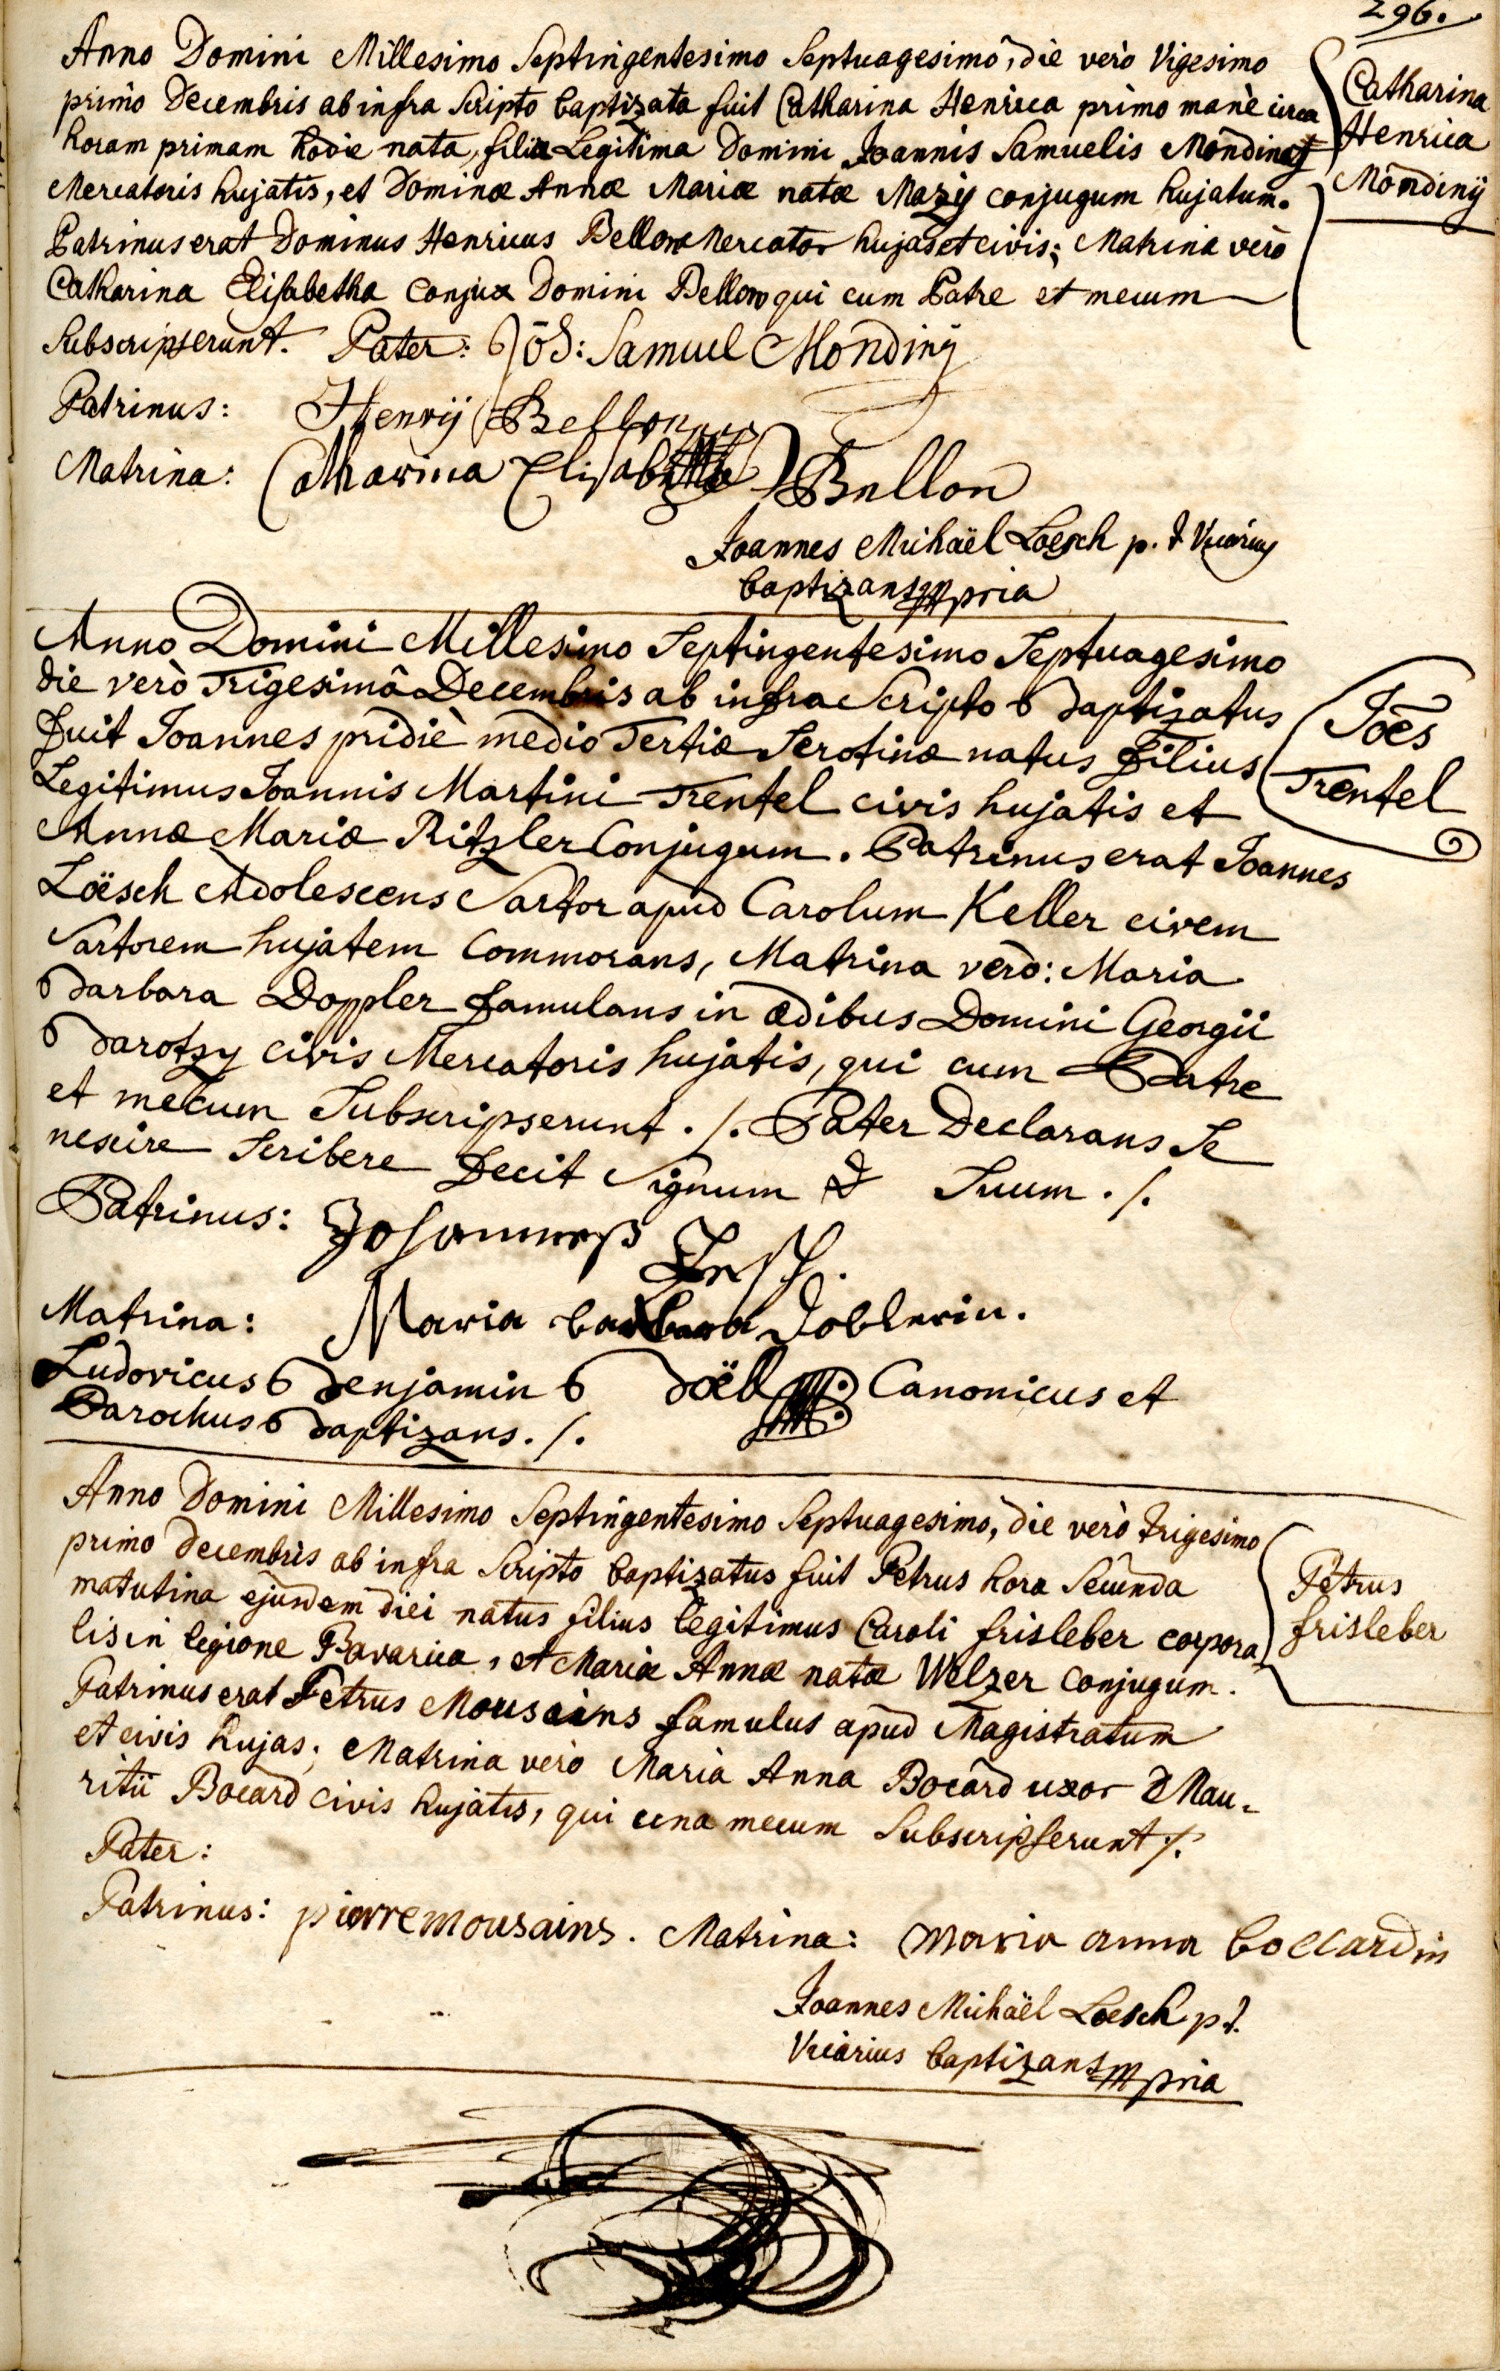 296.
Anno Domini Millesimo Septingentesimo Septuagesimô, die verò Vigesimo
primo Decembris ab infra scripto baptizata fuit Catharina Henrica primo manè circa
horam primam hodie nata, filia Legitima Domini Joannis Samuelis Mondinÿ
Mercatoris hujatis, et Dominæ Annæ Mariæ natæ Mazÿ conjugum hujatum.
Patrinus erat Dominus Henricus Bellon Mercator hujas et civis; Matrina verò
Catharina Elisabetha Conjux Domini Bellon qui cum Patre et mecum
Subscripserunt. Pater: Jōs: Samuel Mondinÿ
Catharina
Henrica
Mondinÿ
Patrinus: Henrÿ Bellon
Matrina: Catharina Elisabetha Bellon
Joannes Michaël Loesch p. t Vicarius
baptizans mpria
Anno Domini Millesimo Septingentesimo Septuagesimo
die verò Trigesimâ Decembris ab infra Scripto Baptizatus
Fuit Joannes pridiè medio Tertiæ Serotinæ natus Filius
Legitimus Joannis Martini Trentel civis hujatis et
Annæ Mariæ Ritzler Conjugum. Patrinus erat Joannes
Löesch Adolescens Sartor apud Carolum Keller civem
Sartorem hujatem Commorans, Matrina verò: Maria
Barbara Doppler Famulans in ædibus Domini Georgii
Barotzy civis Mercatoris hujatis, qui cum Patre
et mecum Subscripserunt ./. Pater Declarans Se
nescire Scribere Fecit Signum ✝ Suum ./.
Joēs
Trentel
Patrinus: Johanneß
Lesch.
Matrina: Maria barbara Doblerin.
Ludovicus Benjamin Boëll Canonicus et
Parochus Baptizans ./.
Anno Domini Millesimo Septingentesimo Septuagesimo, die verò trigesimo
primo Decembris ab infra Scripto baptizatus fuit Petrus hora Secunda
matutina ejusdem diei natus filius legitimus Caroli frisleber corpora
lis in legione Bavarica, et Mariæ Annæ natæ Welzer conjugum.
Patrinus erat Petrus Mousains famulus apud Magistratum
et civis hujas; Matrina verò Maria Anna Bocard uxor Mau-
ritii Bocard civis hujatis, qui una mecum Subscripserunt ./.
Petrus
frisleber
Pater:
Patrinus: pierre mousains. Matrina: maria anna boccardin
Joannes Michaël Loesch p. t.
Vicarius baptizans mpria